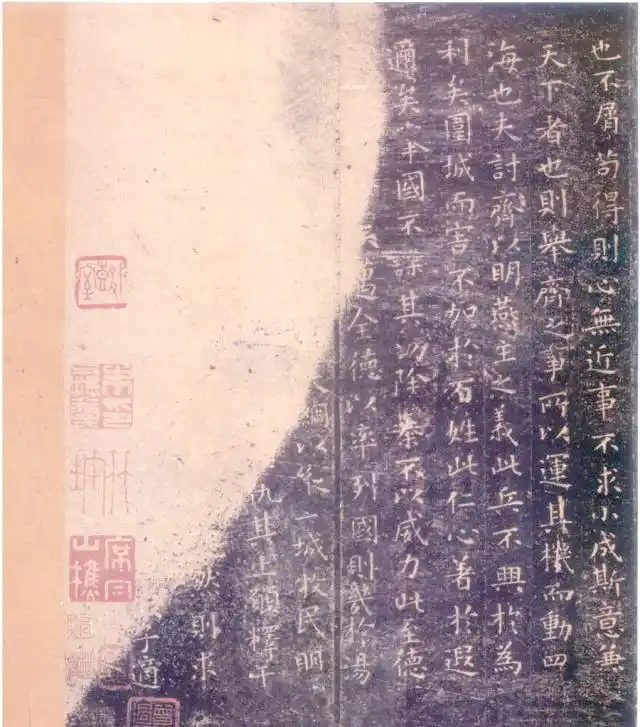 也不屑苟得則心無近事不求小成斯意兼
天下者也則舉齊之事所以運其機而動四
海也夫討齊以明燕主之義此兵不興於為
利矣圍城而害不加於百姓此仁心著於遐
邇矣舉國不謀其功除暴不以威力此至德
邁全德以率列國則幾於湯
綱以縱二城收民明
仇其上願釋干
然則求
子適